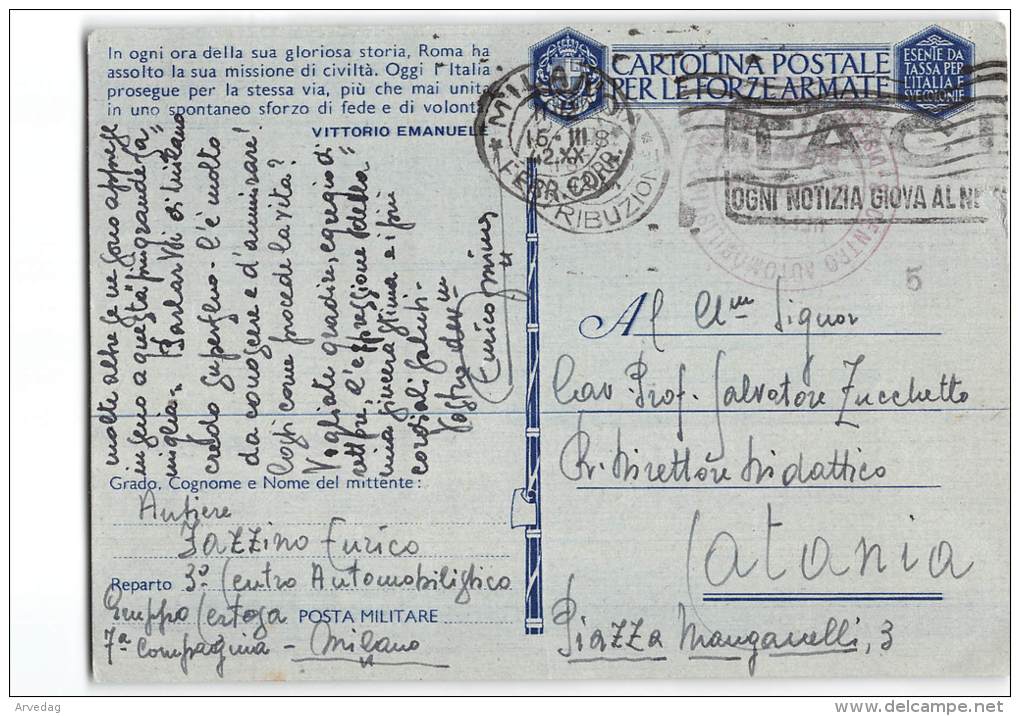 In ogni ora della sua gloriosa storia, Roma ha
assolto la sua missione di civiltà. Oggi l'Italia
prosegue per la stessa via, più che mai unita
in uno spontaneo sforzo di fede e di volontà
VITTORIO EMANUELE
CARTOLINA POSTALE
PER LE FORZE ARMATE
ESENTE DA
TASSA PER
L'ITALIA
SVE COLONIE
MILANO
15-III
42.XX
FERR. CORR.
RIBUZION
TACI
OGNI NOTIZIA GIOVA AL NE
CENTRO AUTOMOBILISTICO
5
molte altre ne sono appese
in giro a questa più grande fa
miglia. Parlar Vi di Milano
credo superfluo - c'è molto
da conoscere e d'ammirare!
Costì come procede la vita?
Vogliate gradire, egregio di
rettore, l'espressione della
mia sincera stima e i più
cordiali saluti -
Vostro dev.mo
Enrico
Al Ill.mo Signor
Cav. Prof. Salvatore Zucchetto
R. Direttore Didattico
Catania
Piazza Manganelli, 3
Grado, Cognome e Nome del mittente:
Autiere
Jazzino Enrico
Reparto 3° Centro Automobilistico
Gruppo Certosa POSTA MILITARE
7ª Compagnia - Milano
Arvedag
delcampe.net